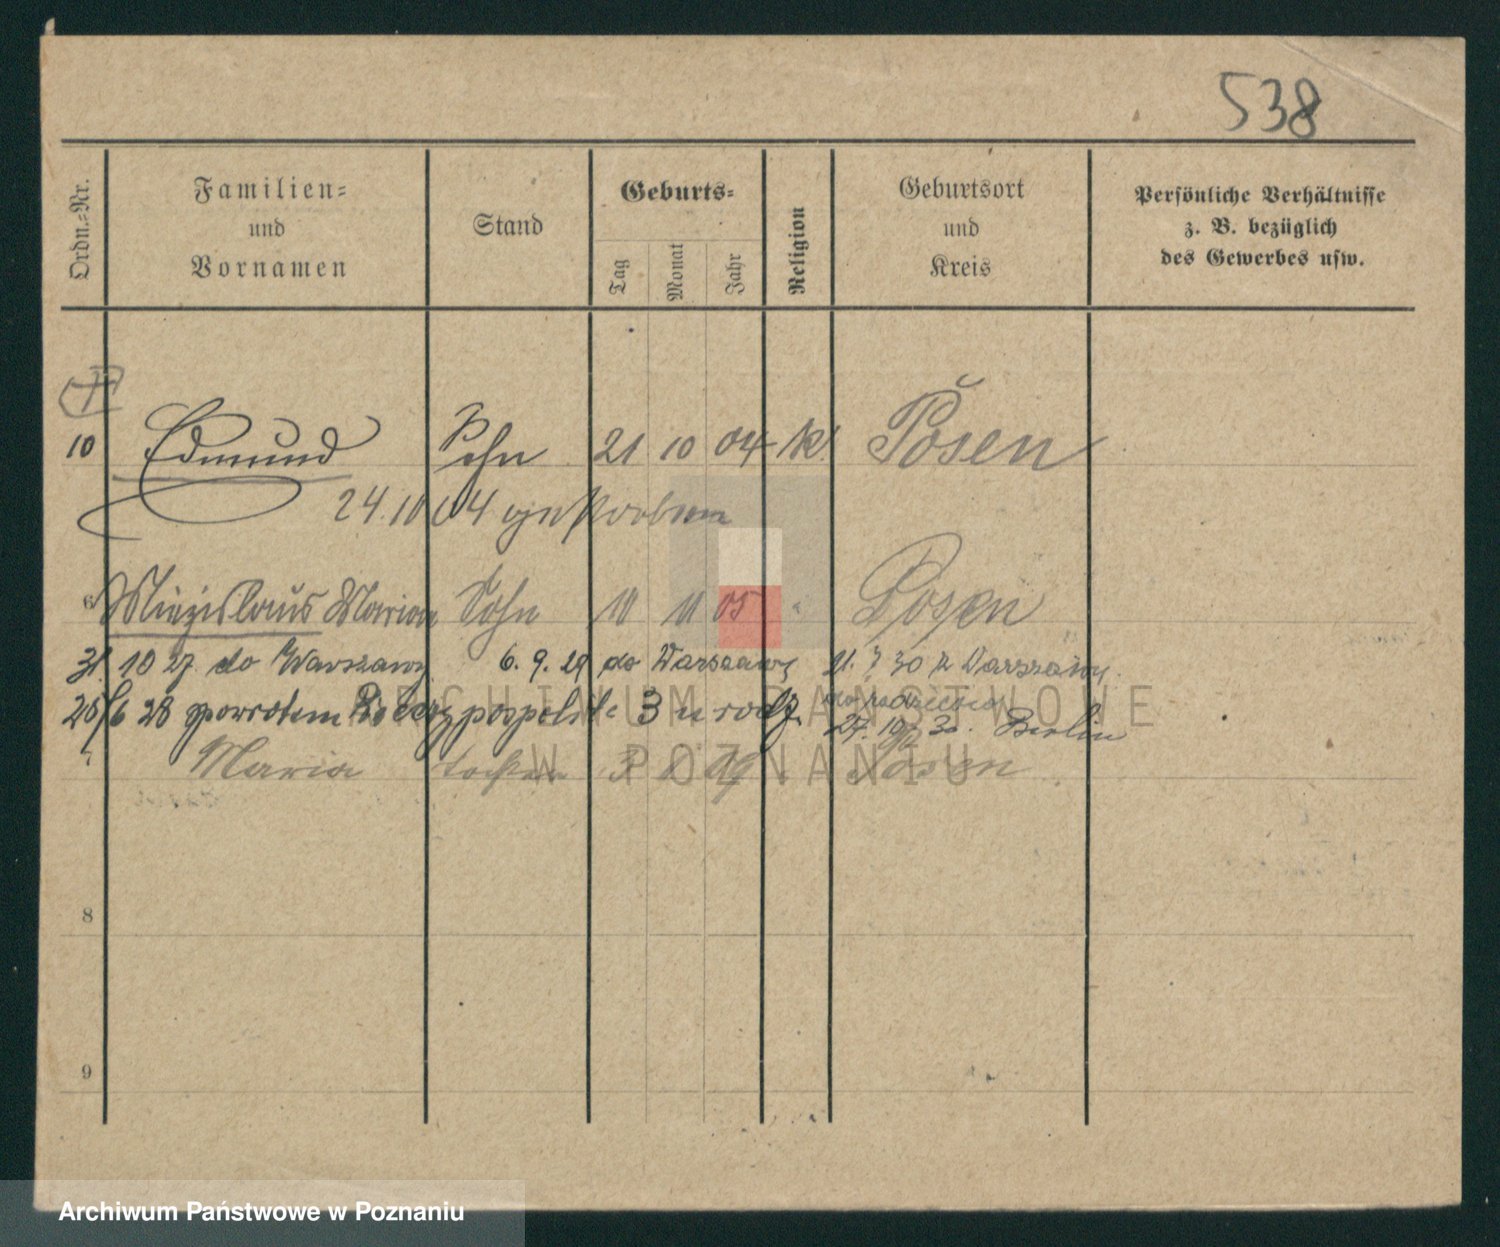 538
Ordn.-Nr.
Familien-
und
Vornamen
Stand
Geburts-
Tag
Monat
Jahr
Religion
Geburtsort
und
Kreis
Persönliche Verhältnisse
z. B. bezüglich
des Gewerbes usw.
10 Edmund Sohn 21 10 04 k. Posen
24.10 04
6 Miezislaus Marian Sohn 11 11 05 " Posen
31. 10 27. do Warszawy 6. 9. 29 do Warszawy 21. 7 30 z Warszawy
25/6 28 zpowrotem Rzeczypospolite 3 u rodz.
27. 10 30. Berlin
Maria Tochter 3 Posen
8
9
ARCHIWUM PAŃSTWOWE
W POZNANIU
Archiwum Państwowe w Poznaniu